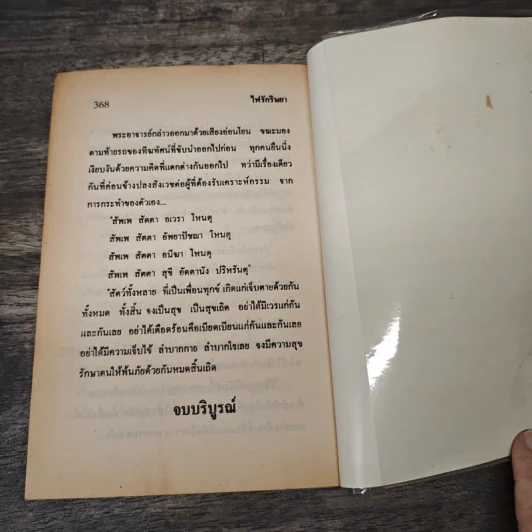 368
ไฟรักริษยา
พระอาจารย์กล่าวออกมาด้วยเสียงอ่อนโยน ขณะมอง
ตามท้ายรถของทีฆทัศน์ที่ขับนำออกไปก่อน ทุกคนยืนนิ่ง
เงียบงันด้วยความคิดที่แตกต่างกันออกไป ทว่ามีเรื่องเดียว
กันที่ค่อนข้างปลงสังเวชต่อผู้ที่ต้องรับเคราะห์กรรม จาก
การกระทำของตัวเอง...
"สัพเพ สัตตา อเวรา โหนตุ
สัพเพ สัตตา อัพยาปัชฌา โหนตุ
สัพเพ สัตตา อนีฆา โหนตุ
สัพเพ สัตตา สุขี อัตตานัง ปริหรันตุ"
"สัตว์ทั้งหลาย ที่เป็นเพื่อนทุกข์ เกิดแก่เจ็บตายด้วยกัน
ทั้งหมด ทั้งสิ้น จงเป็นสุข เป็นสุขเถิด อย่าได้มีเวรแก่กัน
และกันเลย อย่าได้เดือดร้อนคือเบียดเบียนแก่กันและกันเลย
อย่าได้มีความเจ็บไข้ ลำบากกาย ลำบากใจเลย จงมีความสุข
รักษาตนให้พ้นภัยด้วยกันหมดสิ้นเถิด
จบบริบูรณ์